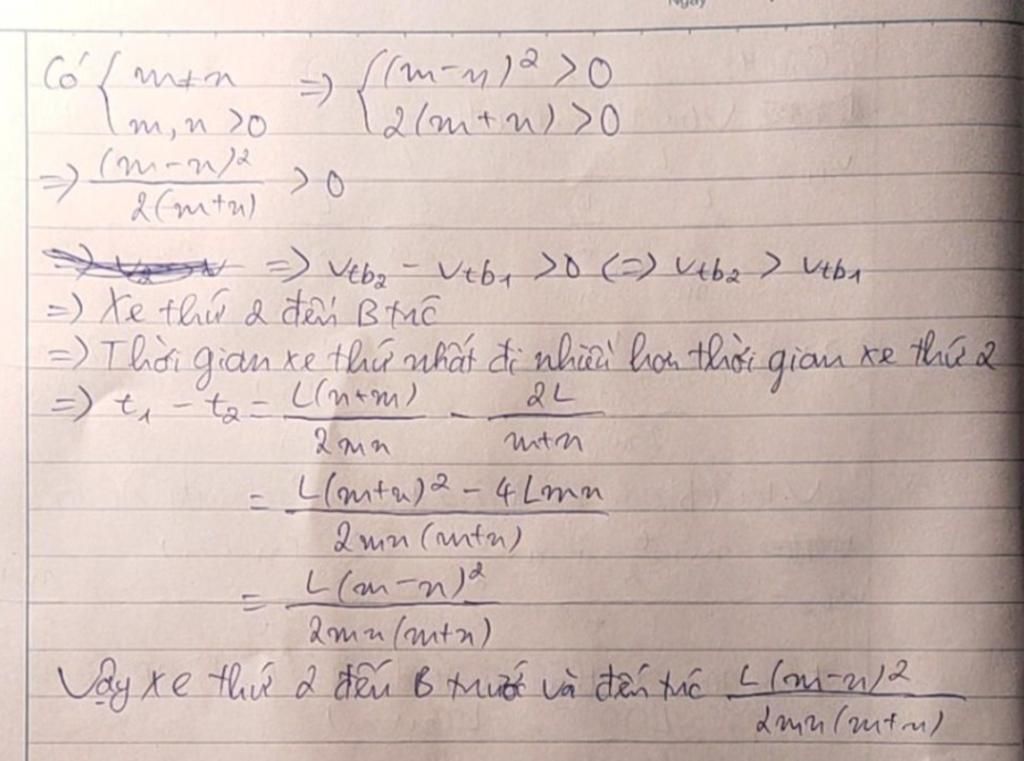 Ngày
Có { m ≠ n => { (m-n)² > 0
m, n > 0 2(m+n) > 0
=> (m-n)² / 2(m+n) > 0
=> Vtb₂ - Vtb₁ > 0 (=) Vtb₂ > Vtb₁
=) Xe thứ 2 đến B trc
=) Thời gian xe thứ nhất đi nhiều hơn thời gian xe thứ 2
=) t₁ - t₂ = L(n+m) / 2mn - 2L / m+n
= L(m+n)² - 4Lmn / 2mn(m+n)
= L(m-n)² / 2mn(m+n)
Vậy xe thứ 2 đến B trước và đến trc L(m-n)² / 2mn(m+n)